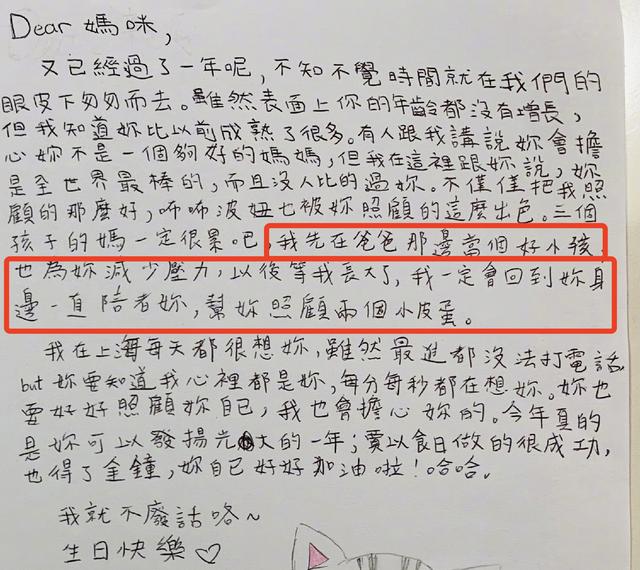 Dear 媽咪,
又已經過了一年呢，不知不覺時間就在我們的
眼皮下匆匆而去。雖然表面上你的年齡都沒有增長，
但我知道妳比以前成熟了很多。有人跟我講說妳會擔
心妳不是一個夠好的媽媽，但我在這裡跟妳說，妳
是全世界最棒的，而且沒人比的過妳。不僅僅把我照
顧的那麼好，咘咘波妞也被妳照顧的這麼出色。三個
孩子的媽一定很累吧，我先在爸爸那邊當個好小孩，
也為妳減少壓力，以後等我長大了，我一定會回到妳身
邊一直陪者妳，幫妳照顧兩個小皮蛋。
我在上海每天都很想妳，雖然最進都沒法打電話
but 妳要知道我心裡都是妳，每分每秒都在想妳。妳也
要好好照顧妳自己，我也會擔心妳的。今年真的
是妳可以發揚光大的一年；賣以食日做的很成功，
也得了金鐘，妳自己好好加油啦！哈哈。
我就不廢話咯~
生日快樂♡